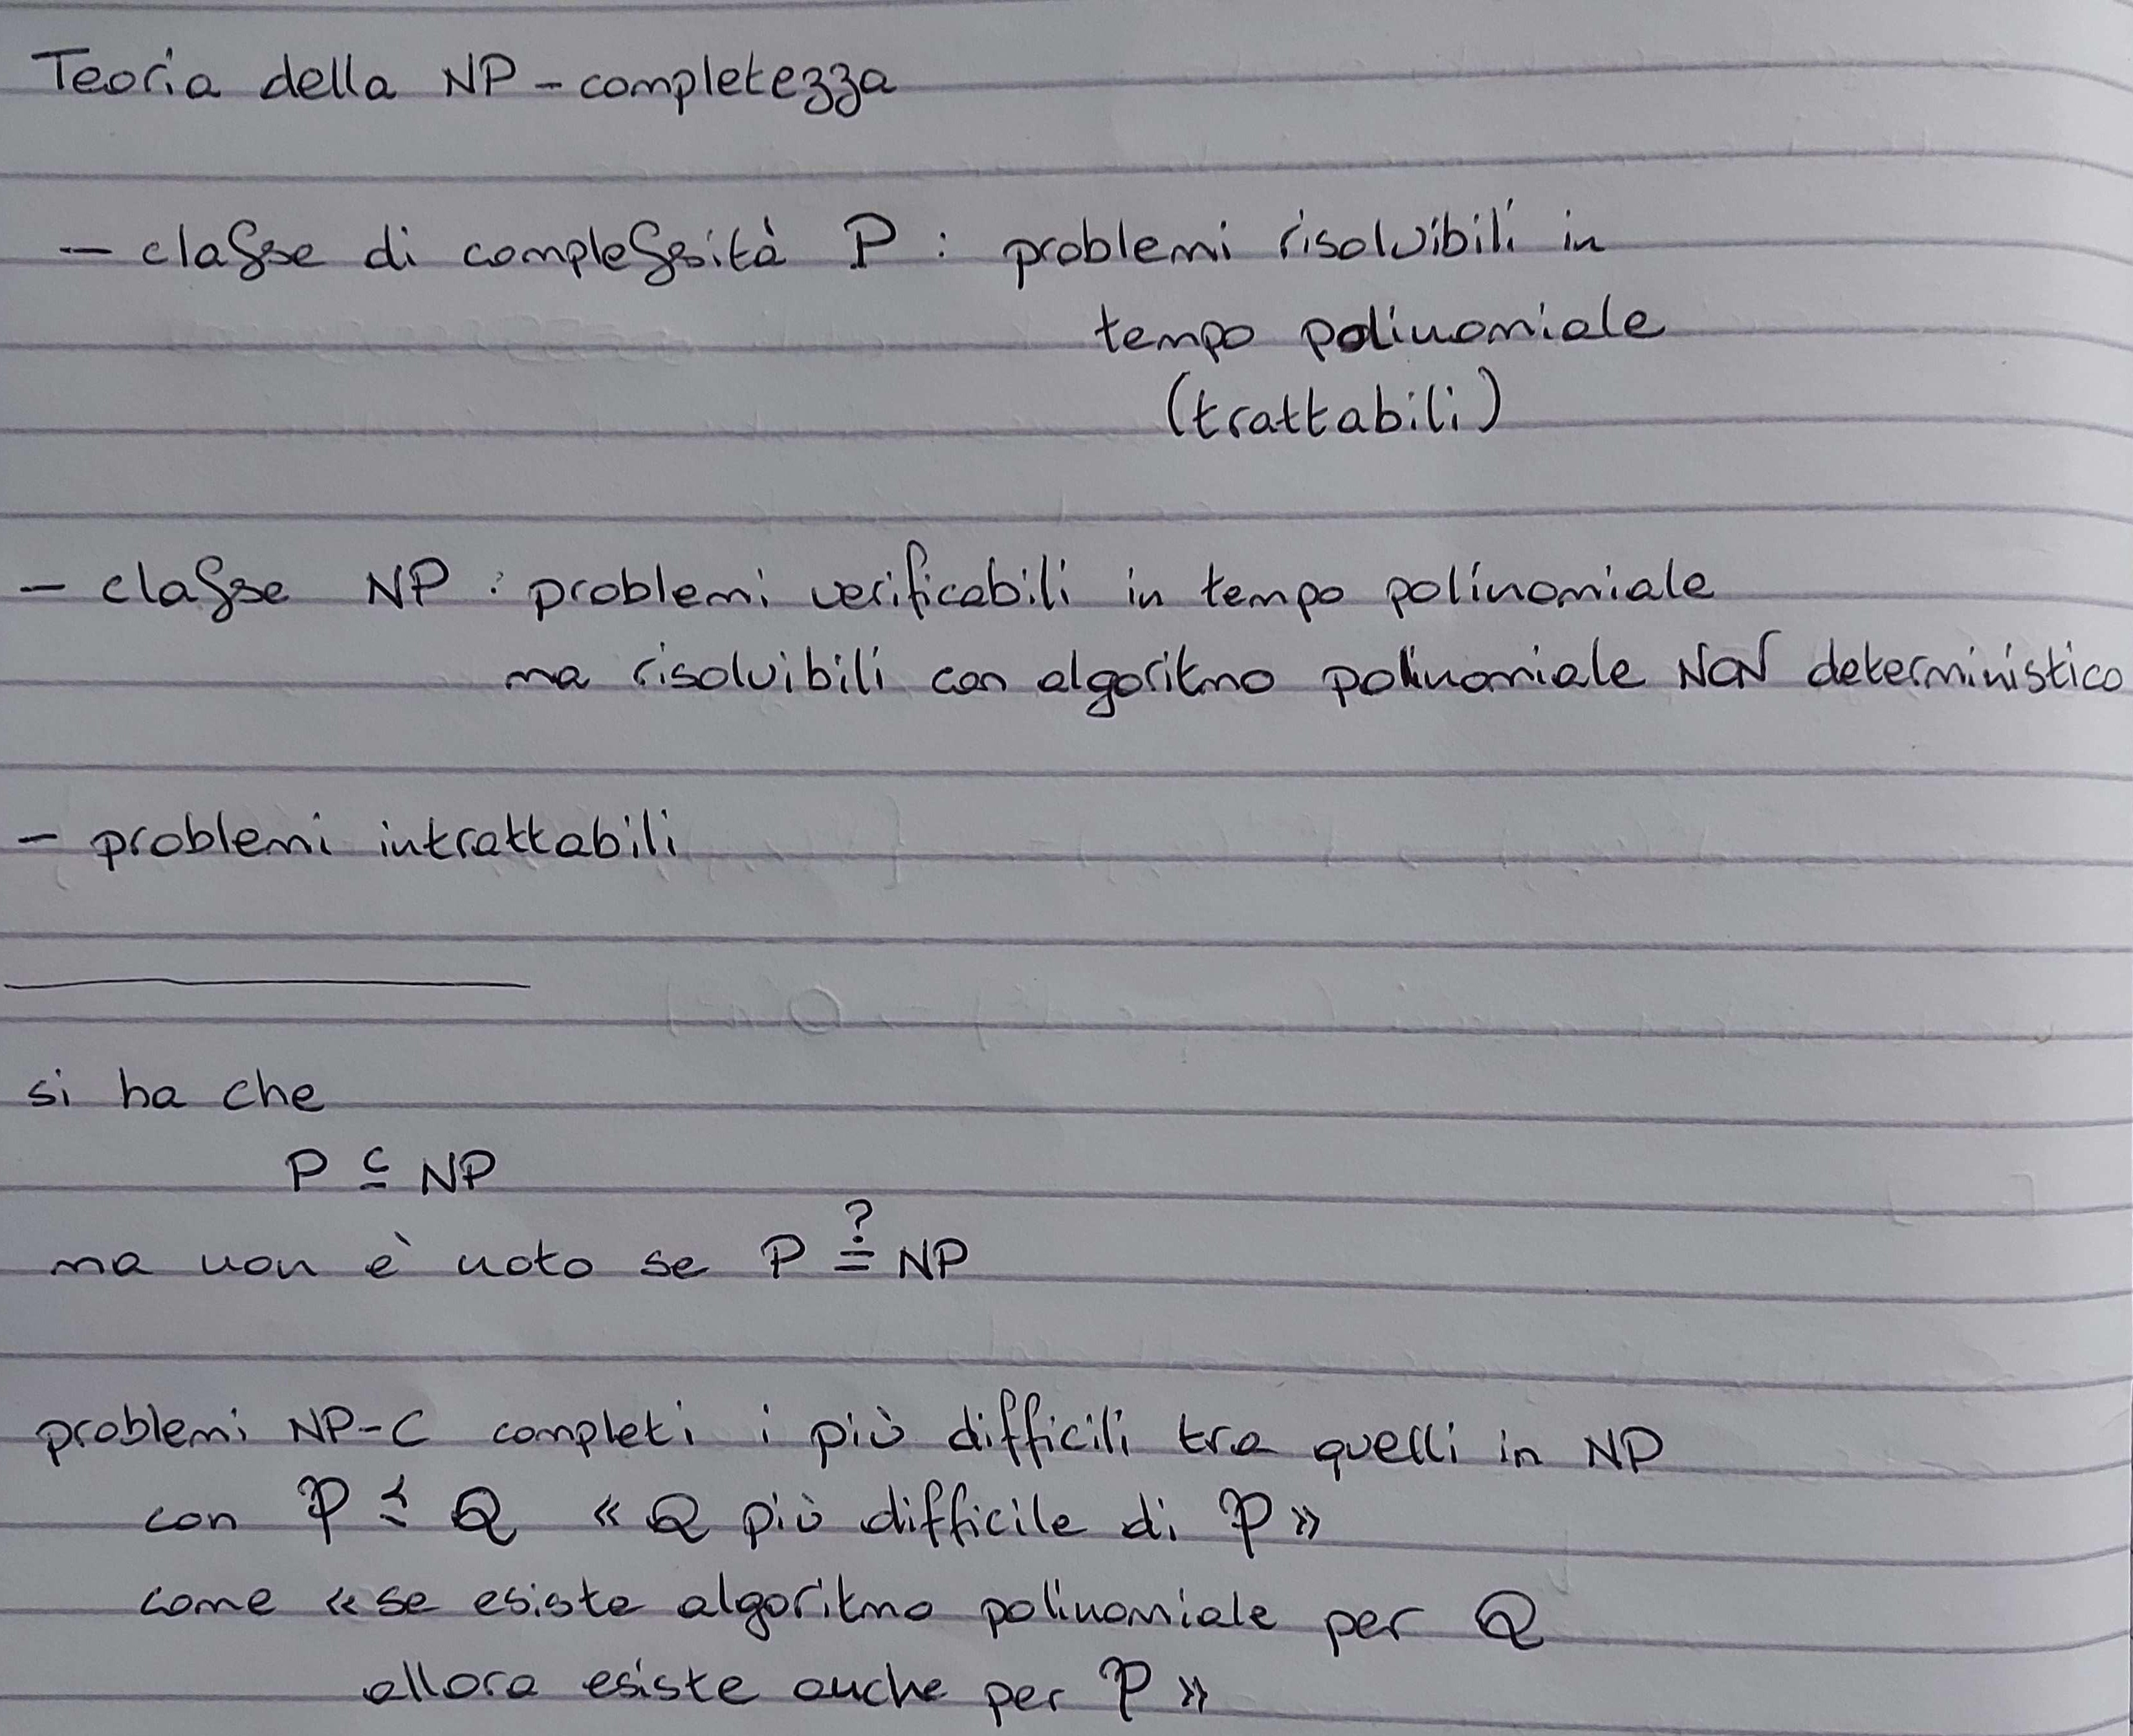 Teoria della NP-completezza
- classe di complessità P : problemi risolvibili in
tempo polinomiale
(trattabili)
- classe NP : problemi verificabili in tempo polinomiale
ma risolvibili con algoritmo polinomiale NON deterministico
- problemi intrattabili
si ha che
P ⊆ NP
ma non è noto se P ≟ NP
problemi NP-C completi i più difficili tra quelli in NP
con 𝒫 ⪯ Q « Q più difficile di 𝒫 »
come « se esiste algoritmo polinomiale per Q
allora esiste anche per 𝒫 »